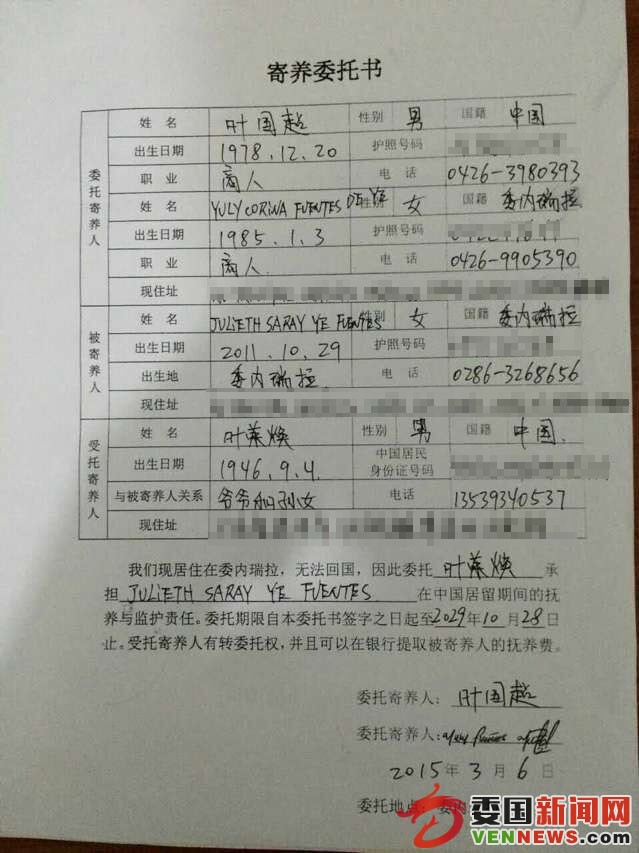 寄养委托书
委托寄养人
姓 名 叶国越 性别 男 国籍 中国
出生日期 1978.12.20 护照号码
职 业 商人 电 话 0426-3980393
姓 名 YULY CORINA FUENTES DE YE 性别 女 国籍 委内瑞拉
出生日期 1985.1.3 护照号码
职 业 商人 电 话 0426-9905390
现住址
被寄养人
姓 名 JULIETH SARAY YE FUENTES 性别 女 国籍 委内瑞拉
出生日期 2011.10.29 护照号码
出生地 委内瑞拉 电 话 0286-3268656
现住址
受托寄养人
姓 名 叶荣焕 性别 男 国籍 中国.
出生日期 1946.9.4. 中国居民
身份证号码
与被寄养人关系 爷爷和孙女 电话 13539340537
现住址
我们现居住在委内瑞拉，无法回国，因此委托 叶荣焕 承
担 JULIETH SARAY YE FUENTES 在中国居留期间的抚
养与监护责任。委托期限自本委托书签字之日起至2029年10月28日
止。受托寄养人有转委托权，并且可以在银行提取被寄养人的抚养费。
委托寄养人：叶国越
委托寄养人：
2015年 3 月 6 日
委托地点：委内
委国新闻网
VENNEWS.COM